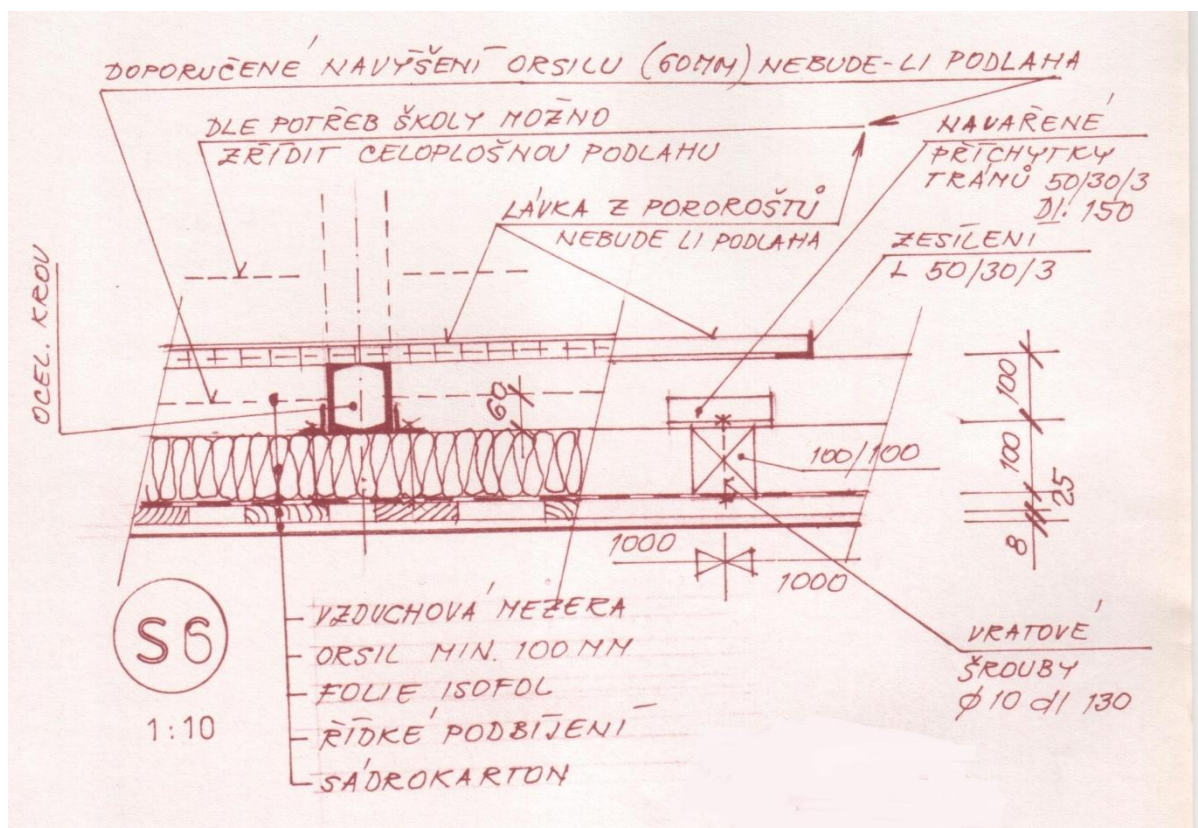 DOPORUČENÉ NAVÝŠENÍ ORSILU (60MM) NEBUDE-LI PODLAHA
DLE POTŘEB ŠKOLY MOŽNO
ZŘÍDIT CELOPLOŠNOU PODLAHU
NAVAŘENÉ
PŘÍCHYTKY
TRÁMŮ 50/30/3
Dl. 150
LÁVKA Z POROROŠTŮ
NEBUDE LI PODLAHA
ZESÍLENI
L 50/30/3
OCEL. KROV
60
100/100
100
100
25
8
1000
1000
S6
1:10
VZDUCHOVÁ MEZERA
ORSIL MIN. 100 MM
FOLIE ISOFOL
ŘÍDKÉ PODBÍJENÍ
SÁDROKARTON
VRATOVÉ
ŠROUBY
ϕ 10 dl 130